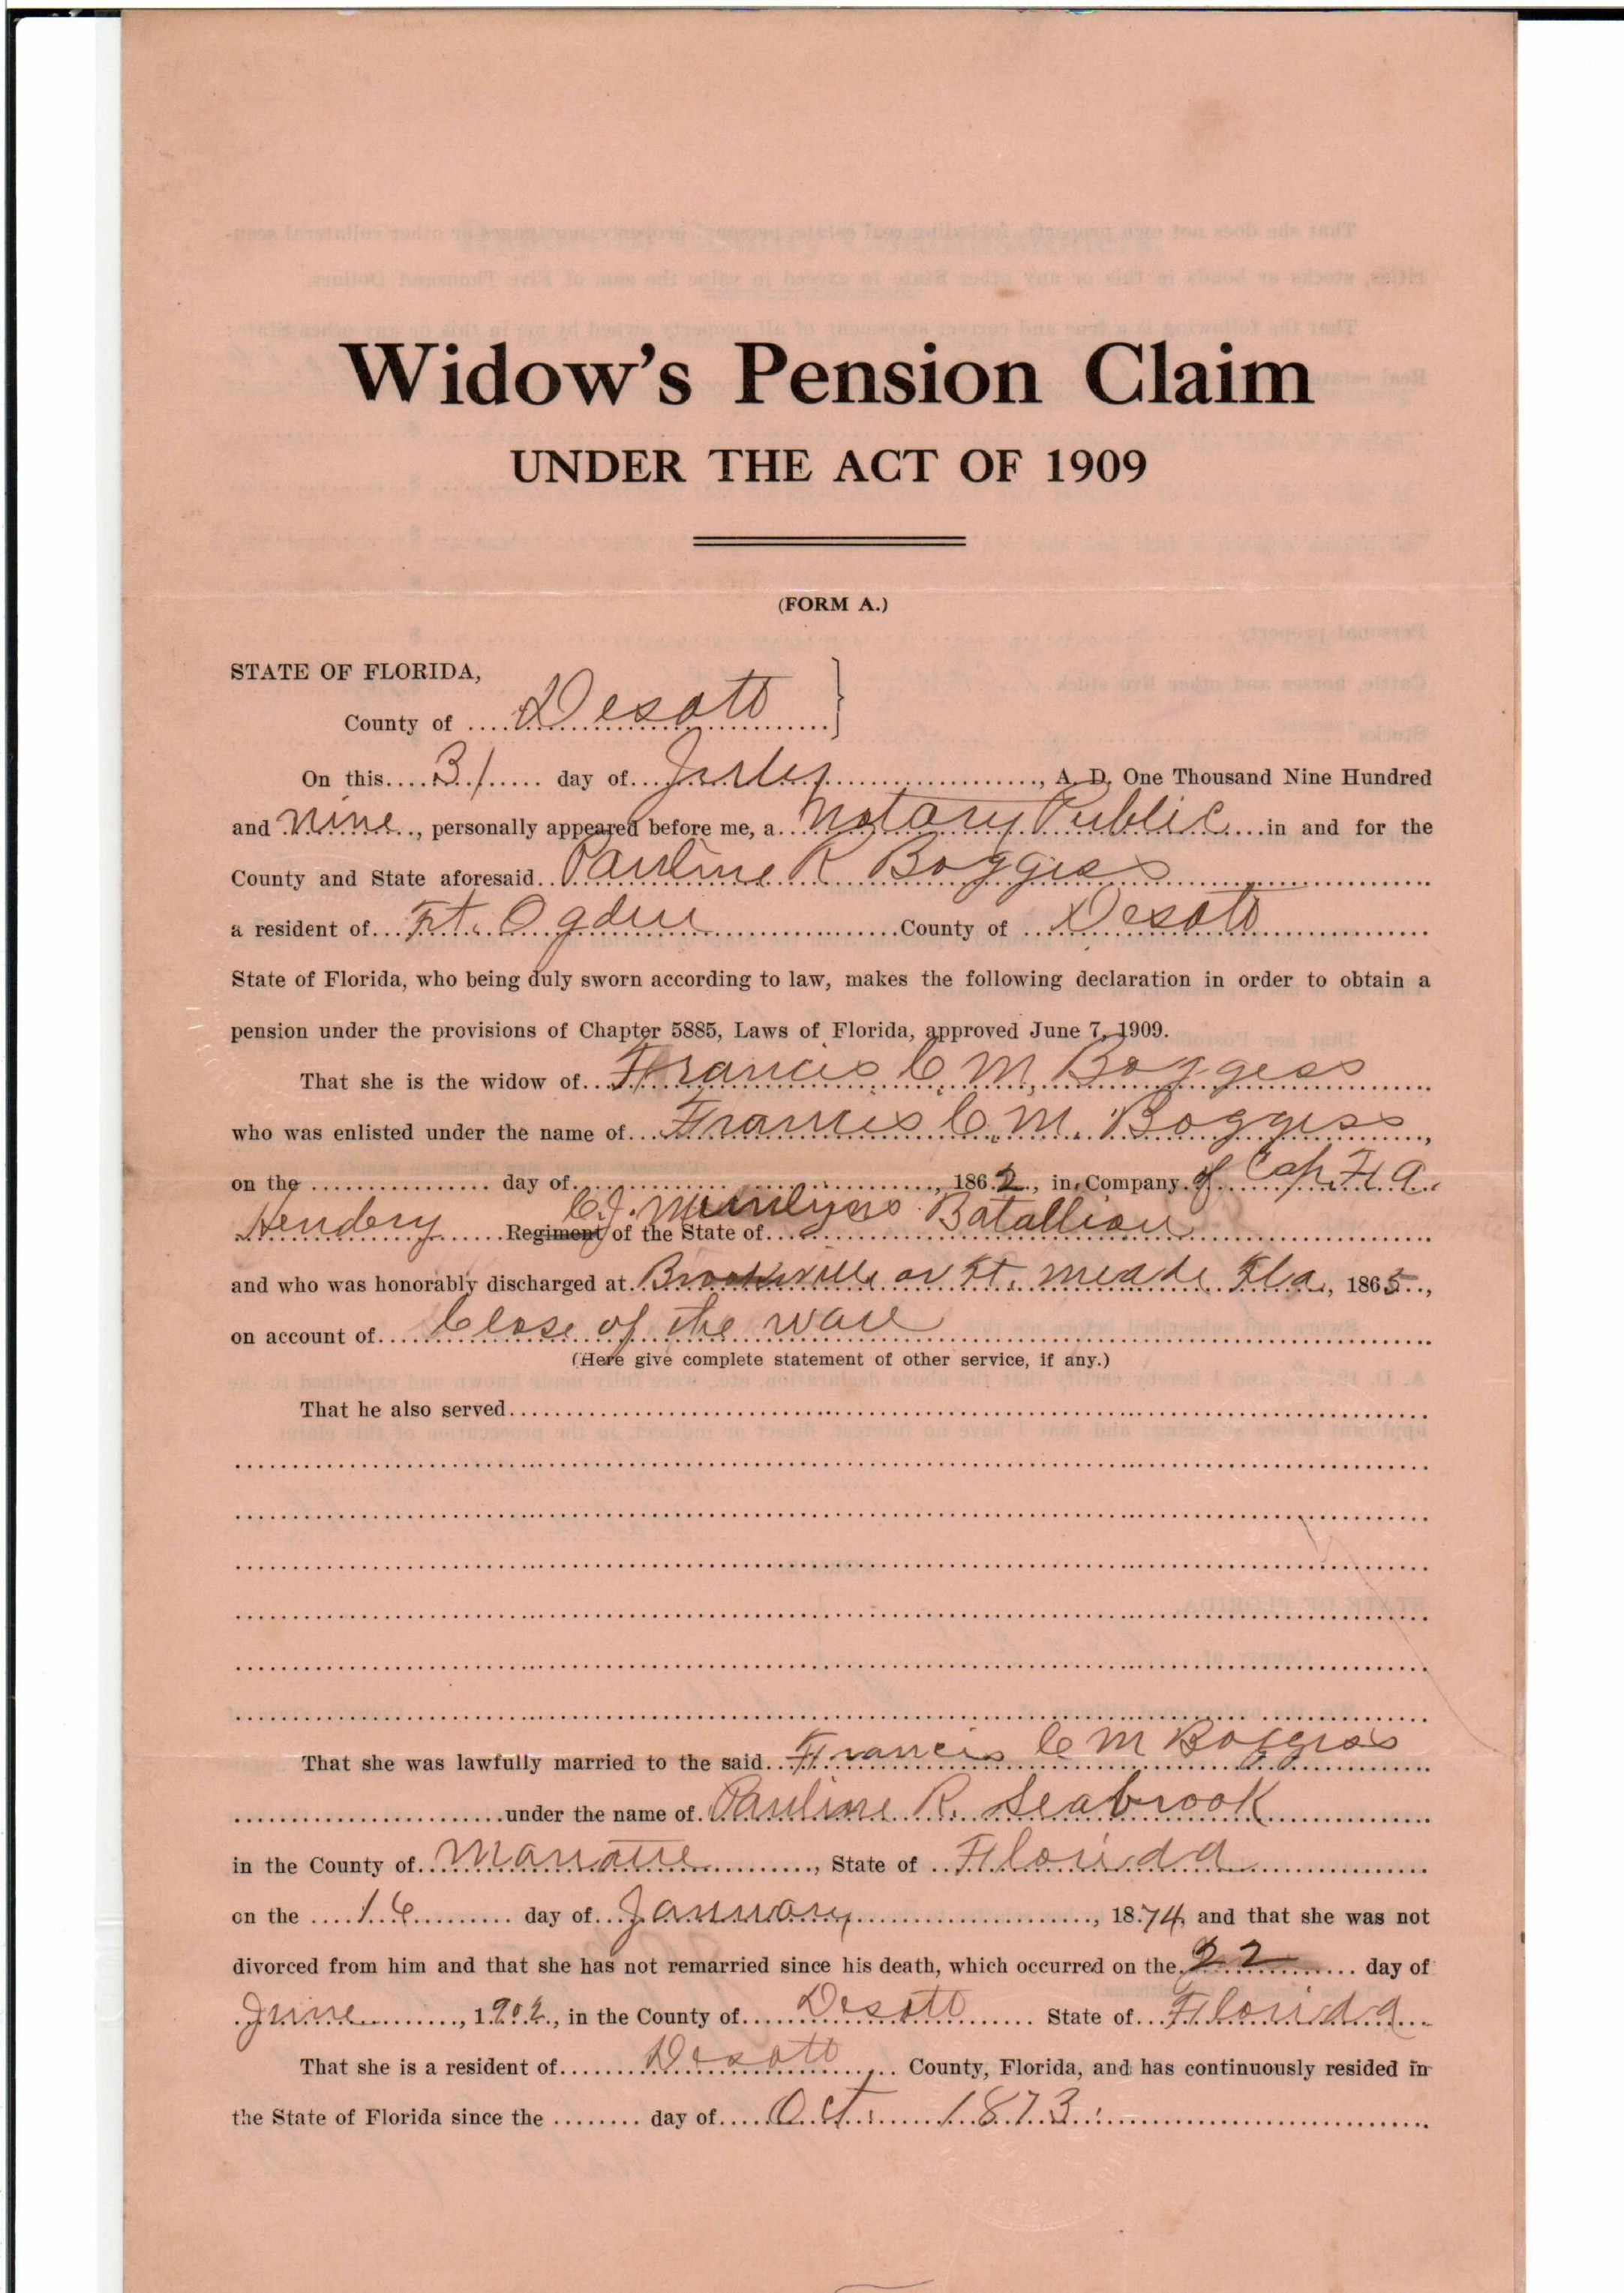 Widow's Pension Claim
UNDER THE ACT OF 1909
(FORM A.)
STATE OF FLORIDA,
County of Desoto
On this 31 day of July, A. D. One Thousand Nine Hundred
and nine, personally appeared before me, a Notary Public in and for the
County and State aforesaid Pauline R Boggess
a resident of Ft. Ogden County of Desoto
State of Florida, who being duly sworn according to law, makes the following declaration in order to obtain a
pension under the provisions of Chapter 5885, Laws of Florida, approved June 7, 1909.
That she is the widow of Francis C. M. Boggess
who was enlisted under the name of Francis C. M. Boggess,
on the day of , 1862, in Company of Cap. F. A.
Hendery C. J. Munlyns Batallion
Regiment of the State of
and who was honorably discharged at Brooksville or Ft. Meade Fla, 1865,
on account of Close of the ware
(Here give complete statement of other service, if any.)
That he also served
That she was lawfully married to the said Francis C M Boggess
under the name of Pauline R. Seabrook
in the County of Manatee, State of Florida
on the day of January, 1874 and that she was not
divorced from him and that she has not remarried since his death, which occurred on the 22 day of
June, 1902, in the County of Desoto State of Florida
That she is a resident of Desoto County, Florida, and has continuously resided in
the State of Florida since the day of Oct. 1873.